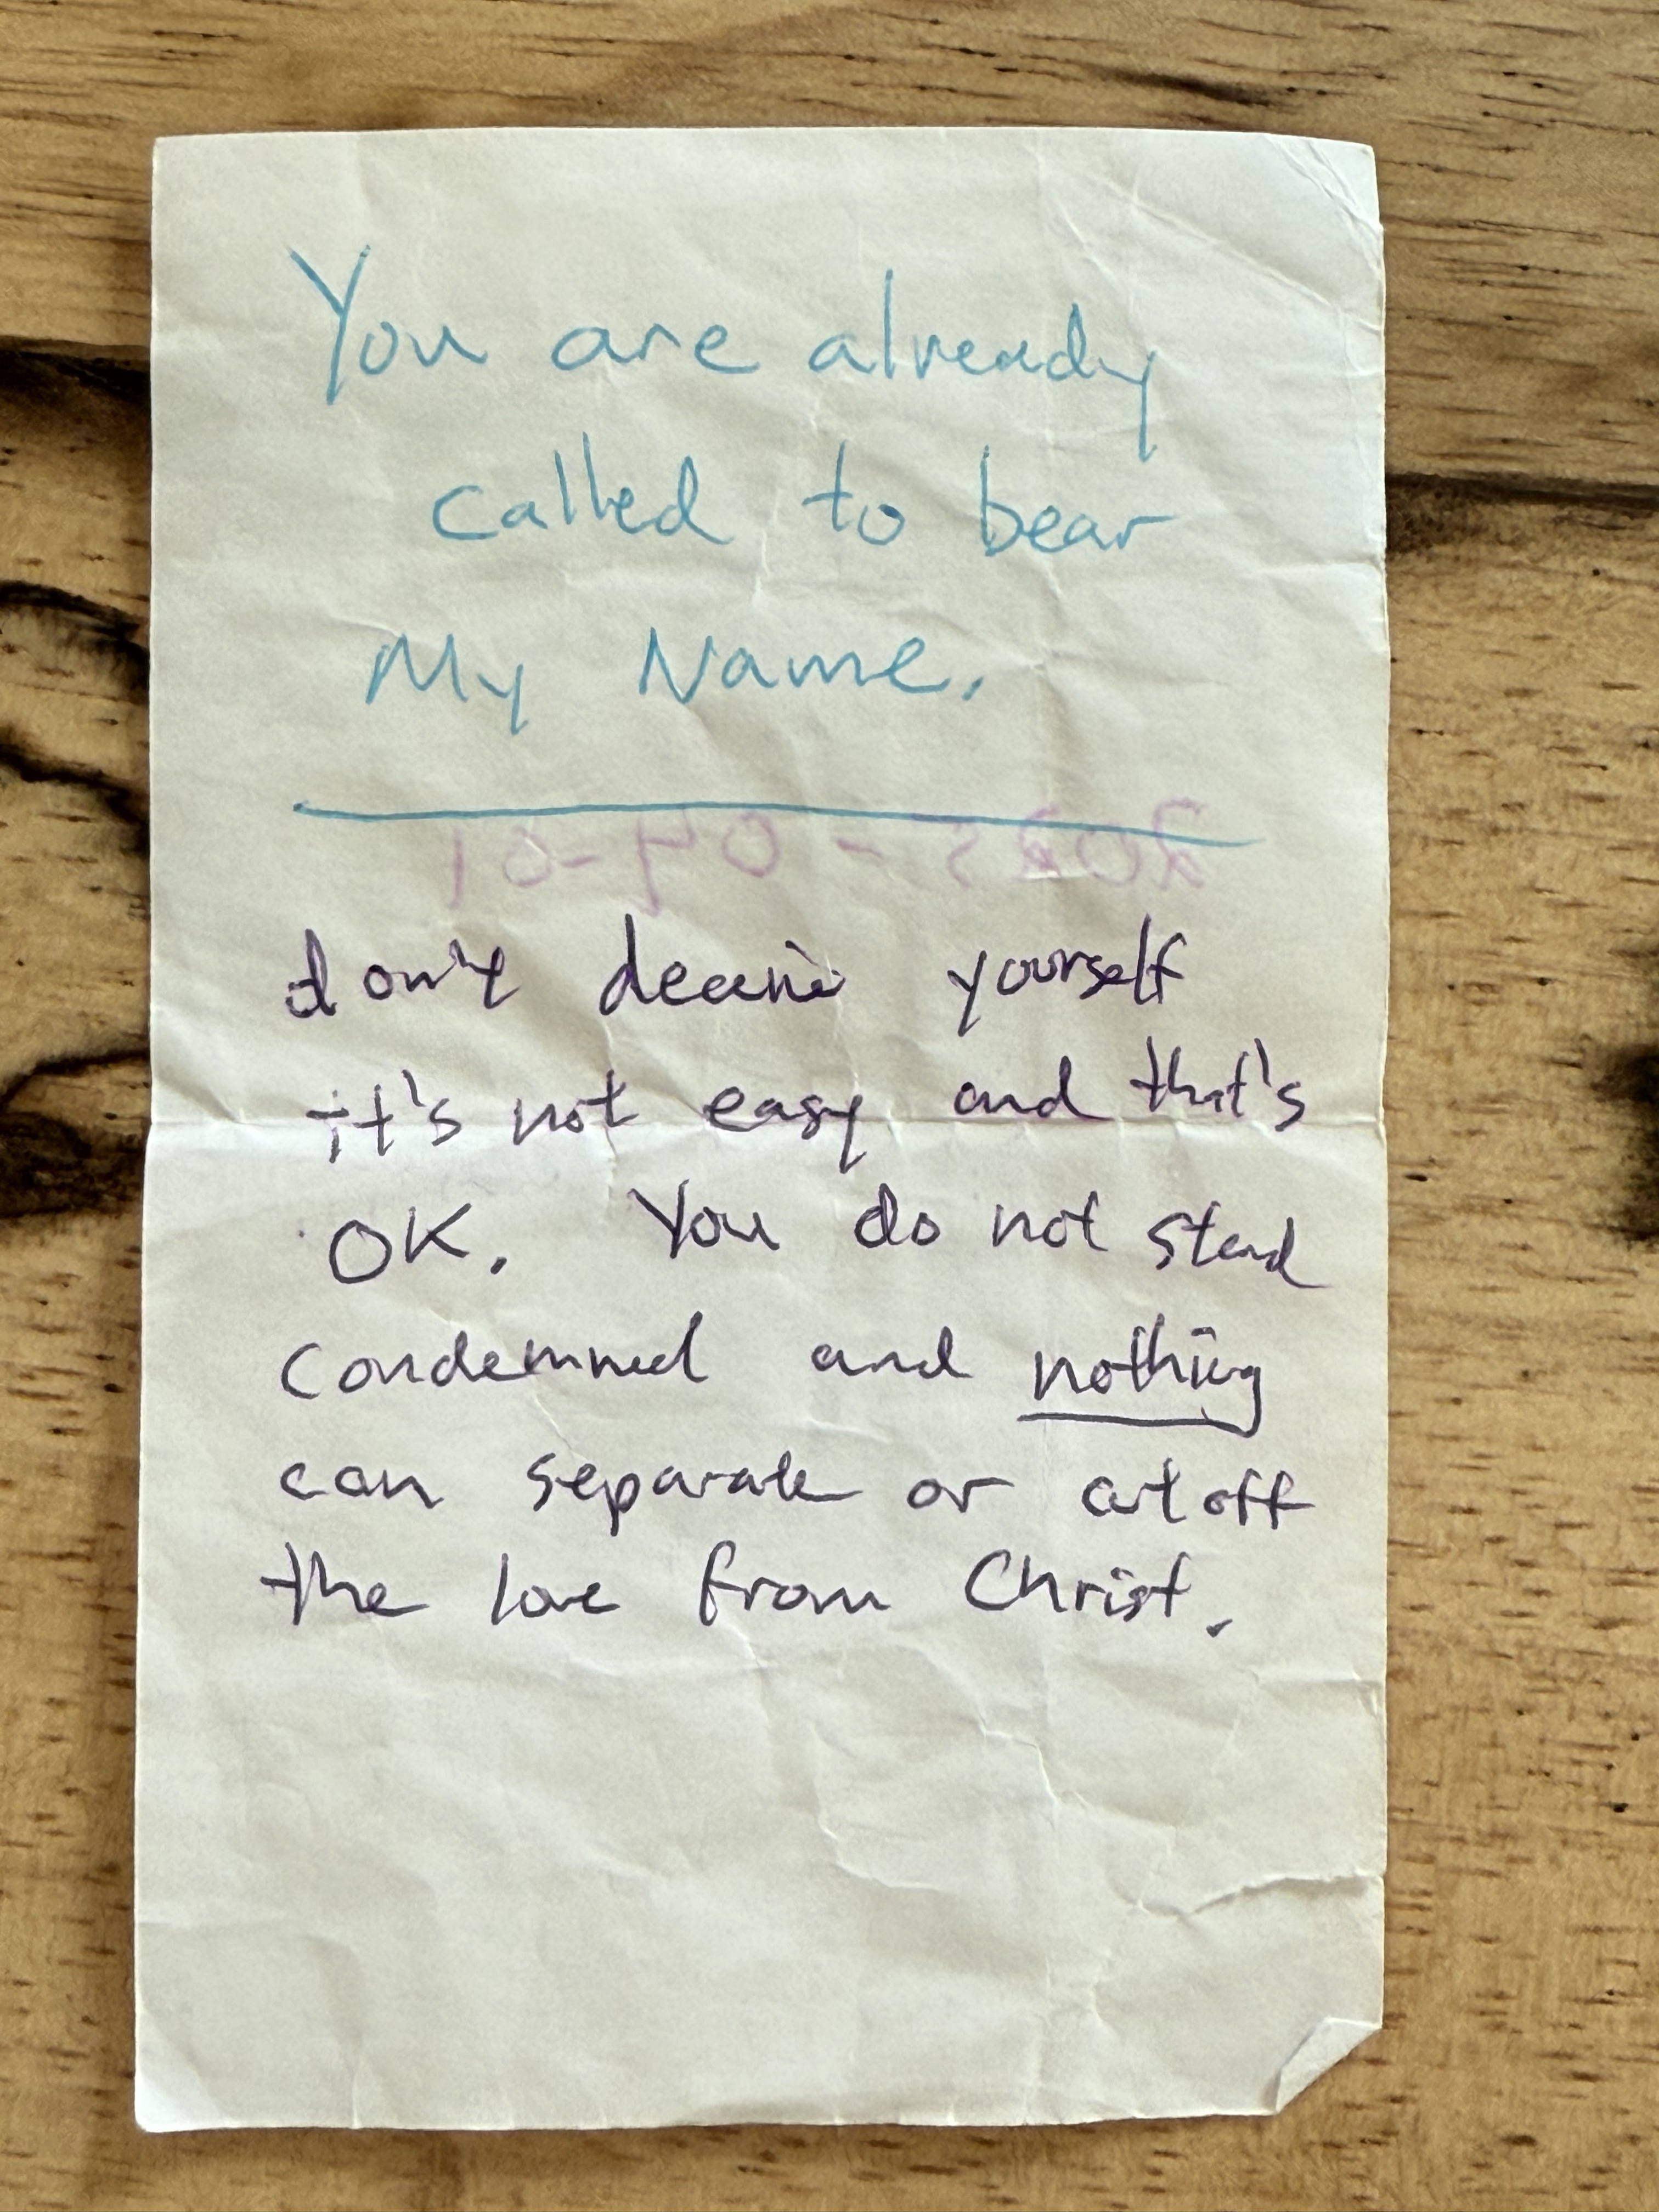 You are already
called to bear
My Name.
2025-04-01
don't deceive yourself
it's not easy and that's
OK. You do not stand
condemned and nothing
can separate or cut off
the love from Christ.